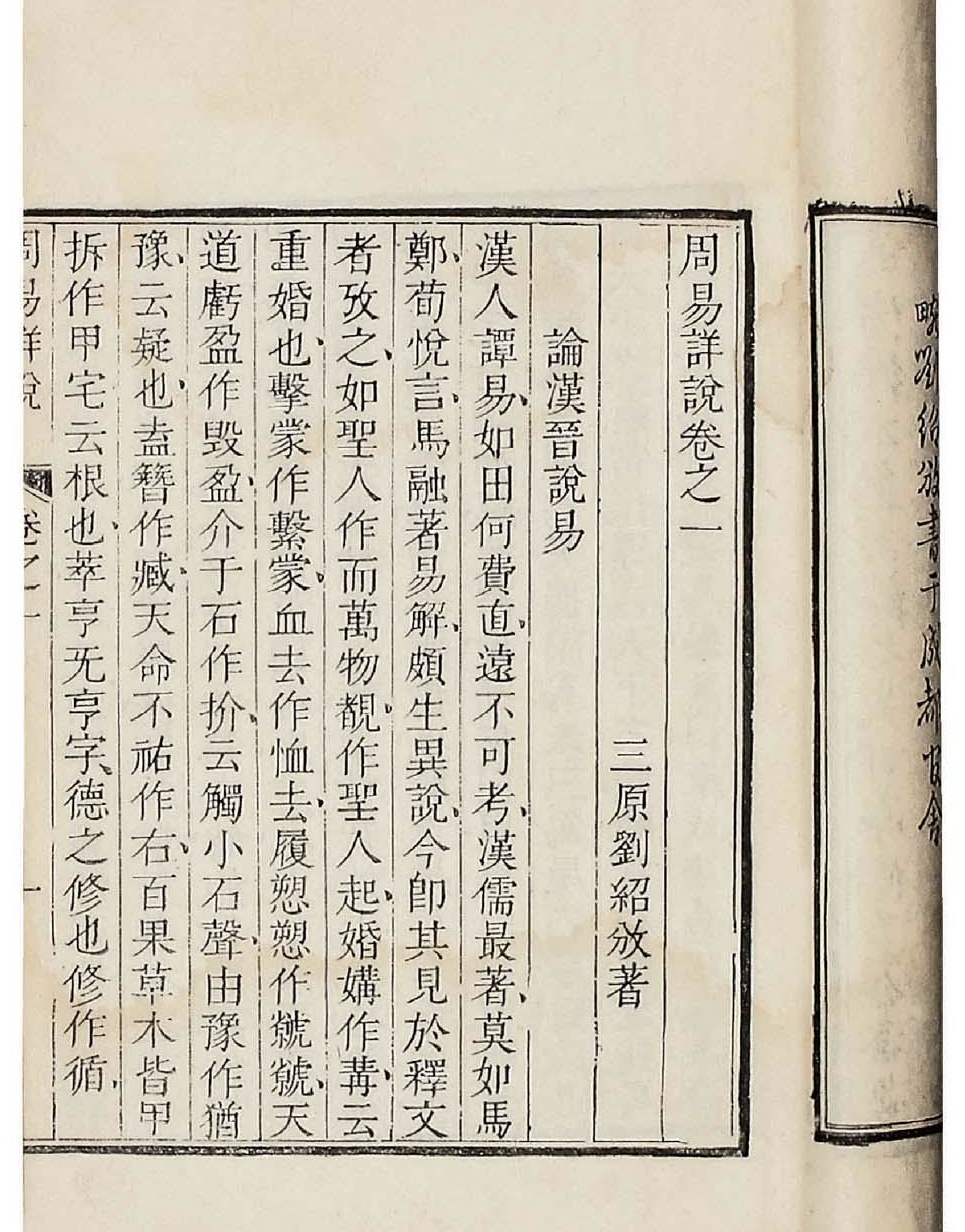 劉紹攽書于成都官舍
周易詳說卷之一
三原劉紹攽著
論漢晉說易
漢人譚易、如田何費直、遠不可考、漢儒最著、莫如馬
鄭、荀悅言、馬融著易解、頗生異說、今卽其見於釋文
者攷之、如聖人作而萬物覩、作聖人起、婚媾作冓、云
重婚也、擊蒙作繫蒙、血去作恤去、履愬愬作虩虩、天
道虧盈作毀盈、介于石作扴、云觸小石聲、由豫作猶
豫、云疑也、盍簪作臧、天命不祐作右、百果草木皆甲
拆作甲宅云根也、萃亨旡亨字、德之修也修作循、
周易詳說 卷之一 一